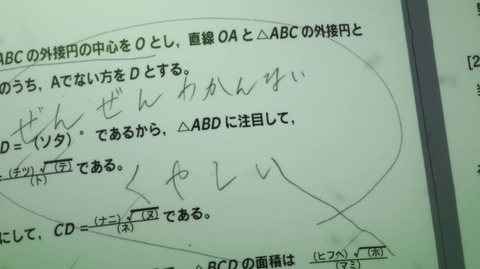 ABCの外接円の中心をOとし，直線OAと△ABCの外接円と
のうち，Aでない方をDとする。
ぜんぜんわかんない
D＝（ソタ）°であるから，△ABDに注目して，
＝(チツ)√(テ)/(ト)である。
くやしい
にして，CD＝(ナニ)√(ヌ)/(ネ)である。
△BCDの面積は (ヒフヘ)√(ホ)/(マミ)
[2